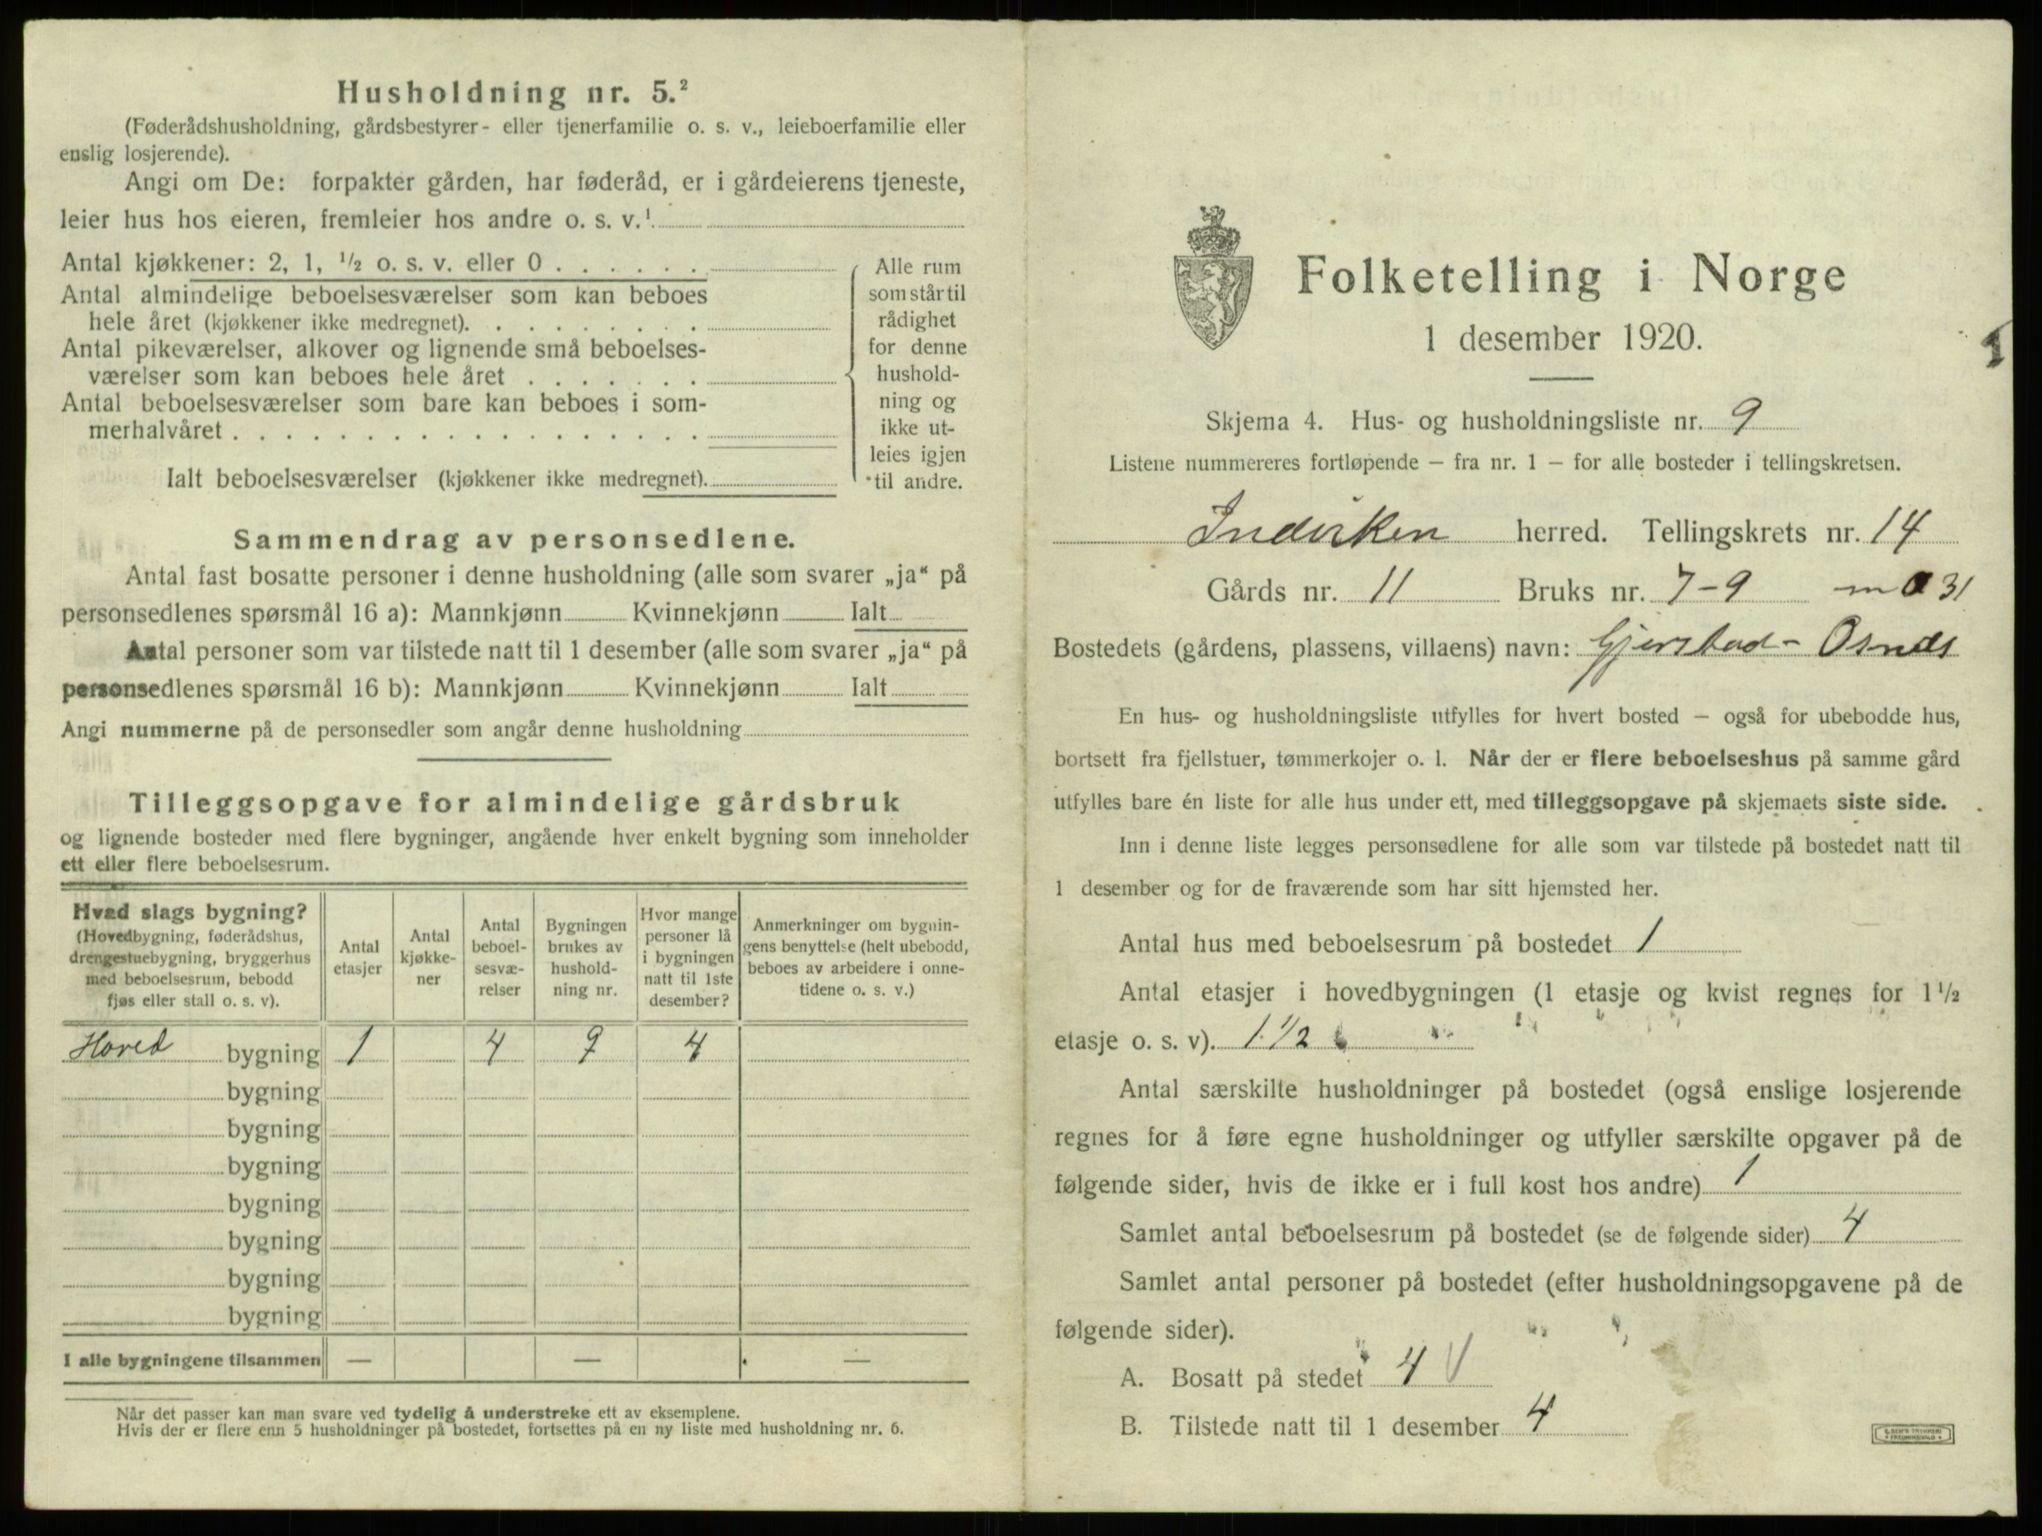 Husholdning nr. 5.²
(Føderådshusholdning, gårdsbestyrer- eller tjenerfamilie o. s. v., leieboerfamilie eller
enslig losjerende).
Angi om De: forpakter gården, har føderåd, er i gårdeierens tjeneste,
leier hus hos eieren, fremleier hos andre o. s. v.¹
Antal kjøkkener: 2, 1, ½ o. s. v. eller 0 . . . . . .
Antal almindelige beboelsesværelser som kan beboes
hele året (kjøkkener ikke medregnet). . . . . . . . .
Antal pikeværelser, alkover og lignende små beboelses-
værelser som kan beboes hele året . . . . . . .
Antal beboelsesværelser som bare kan beboes i som-
merhalvåret . . . . . . . . . . . . . . . . .
Ialt beboelsesværelser (kjøkkener ikke medregnet).
Alle rum
som står til
rådighet
for denne
hushold-
ning og
ikke ut-
leies igjen
til andre.
Sammendrag av personsedlene.
Antal fast bosatte personer i denne husholdning (alle som svarer „ja“ på
personsedlenes spørsmål 16 a): Mannkjønn Kvinnekjønn Ialt
Antal personer som var tilstede natt til 1 desember (alle som svarer „ja“ på
personsedlenes spørsmål 16 b): Mannkjønn Kvinnekjønn Ialt
Angi nummerne på de personsedler som angår denne husholdning
Tilleggsopgave for almindelige gårdsbruk
og lignende bosteder med flere bygninger, angående hver enkelt bygning som inneholder
ett eller flere beboelsesrum.
Hvad slags bygning?
(Hovedbygning, føderådshus,
drengestuebygning, bryggerhus
med beboelsesrum, bebodd
fjøs eller stall o. s. v).
Antal
etasjer
Antal
kjøkke-
ner
Antal
beboel-
sesvæ-
relser
Bygningen
brukes av
hushold-
ning nr.
Hvor mange
personer lå
i bygningen
natt til 1ste
desember?
Anmerkninger om bygnin-
gens benyttelse (helt ubebodd,
beboes av arbeidere i onne-
tidene o. s. v.)
Hoved bygning 1 4 9 4
bygning
bygning
bygning
bygning
bygning
bygning
bygning
I alle bygningene tilsammen — — —
Når det passer kan man svare ved tydelig å understreke ett av eksemplene.
Hvis der er flere enn 5 husholdninger på bostedet, fortsettes på en ny liste med husholdning nr. 6.
Folketelling i Norge
1 desember 1920.
1
Skjema 4. Hus- og husholdningsliste nr. 9
Listene nummereres fortløpende – fra nr. 1 – for alle bosteder i tellingskretsen.
Indviken herred. Tellingskrets nr. 14
Gårds nr. 11 Bruks nr. 7-9 m 31
Bostedets (gårdens, plassens, villaens) navn: Gjerstad- Osnes
En hus- og husholdningsliste utfylles for hvert bosted – også for ubebodde hus,
bortsett fra fjellstuer, tømmerkojer o. l. Når der er flere beboelseshus på samme gård
utfylles bare én liste for alle hus under ett, med tilleggsopgave på skjemaets siste side.
Inn i denne liste legges personsedlene for alle som var tilstede på bostedet natt til
1 desember og for de fraværende som har sitt hjemsted her.
Antal hus med beboelsesrum på bostedet 1
Antal etasjer i hovedbygningen (1 etasje og kvist regnes for 1½
etasje o. s. v). 1.½
Antal særskilte husholdninger på bostedet (også enslige losjerende
regnes for å føre egne husholdninger og utfyller særskilte opgaver på de
følgende sider, hvis de ikke er i full kost hos andre) 1
Samlet antal beboelsesrum på bostedet (se de følgende sider) 4
Samlet antal personer på bostedet (efter husholdningsopgavene på de
følgende sider).
A. Bosatt på stedet 4 V
B. Tilstede natt til 1 desember 4